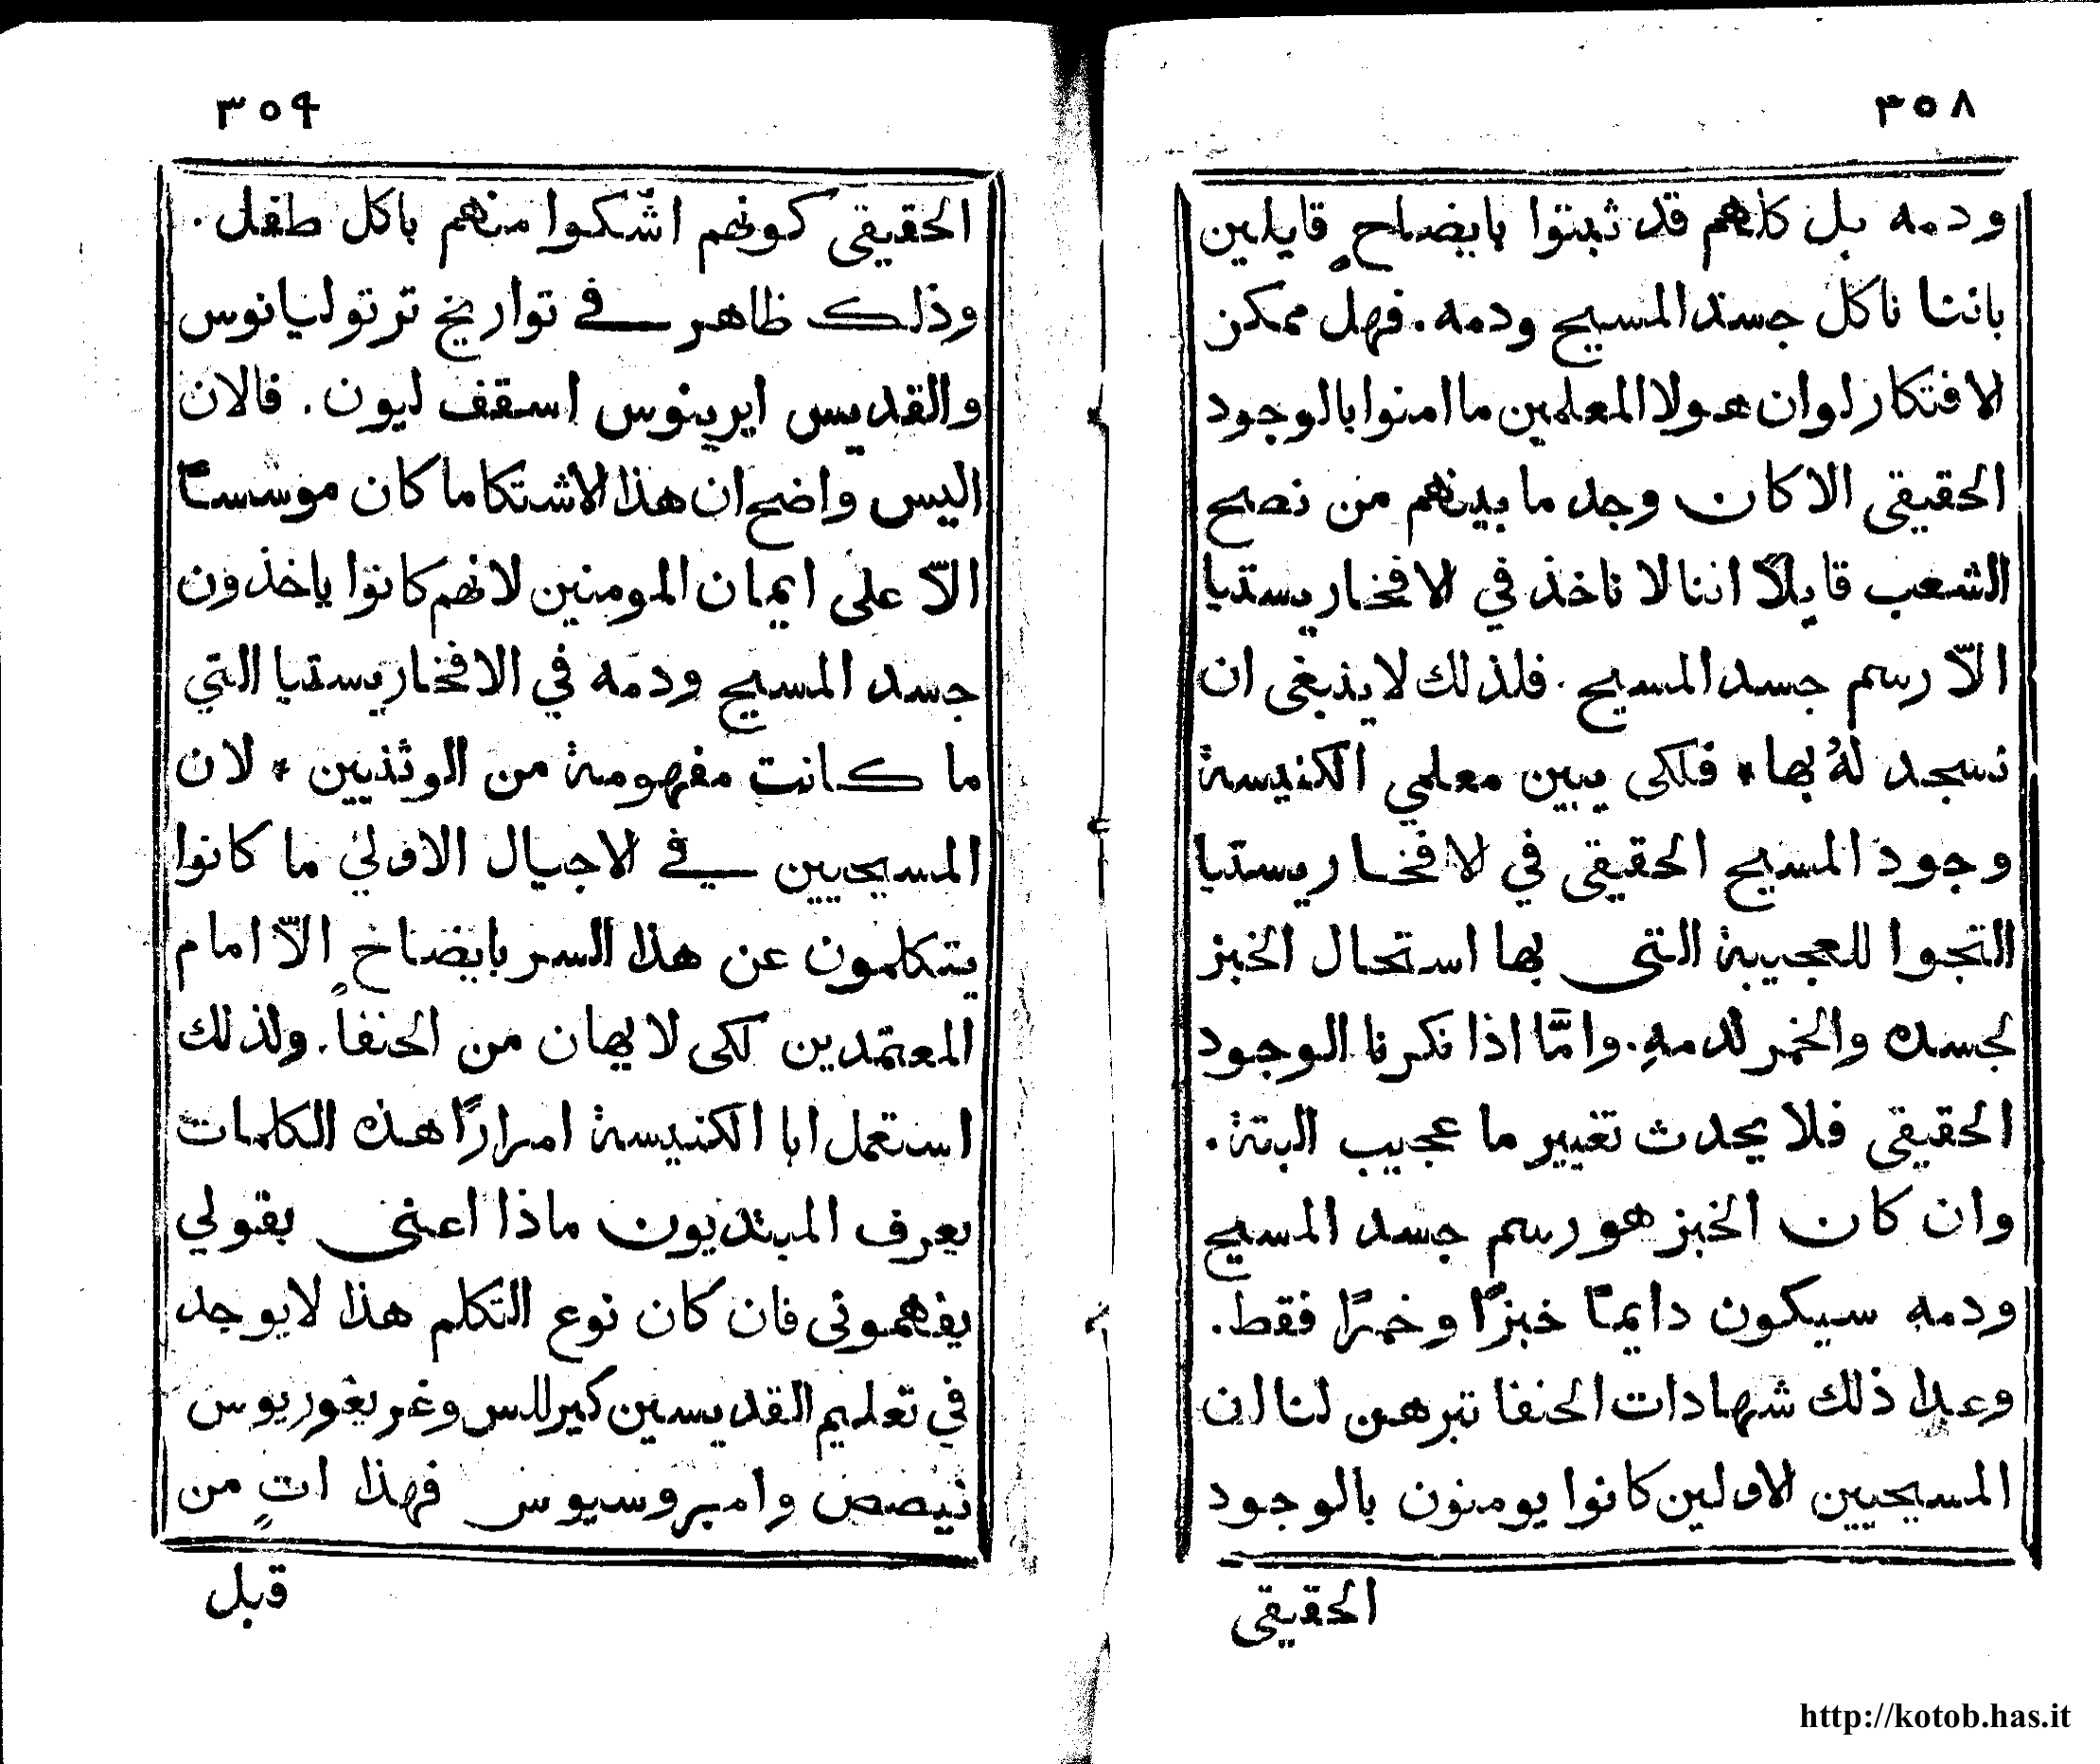 ٣٥٨
ودمه بل كلهم قد ثبتوا بايضاحٍ قايلين
باننا ناكل جسد المسيح ودمه. فهل ممكن
الافتكار لوان هولا المعلمين ما امنوا بالوجود
الحقيقى الا كان وجد ما بينهم من نصح
الشعب قايلاً اننا لا ناخذ في الافخارستيا
الّا رسم جسد المسيح. فلذلك لا ينبغى ان
نسجد لهُ بها * فلكى يبين معلمي الكنيسة
وجود المسيح الحقيقى في الافخاريستيا
التجوا للعجيبة التى بها استحال الخبز
لجسده والخمر لدمهِ. وامَّا اذا نكرنا الوجود
الحقيقى فلا يحدث تغيير ما عجيب البتة.
وان كان الخبز هو رسم جسد المسيح
ودمه سيكون دايماً خبزًا وخمرًا فقط.
وعدا ذلك شهادات الحنفا تبرهن لنا ان
المسيحيين الاولين كانوا يومنون بالوجود
الحقيقى
٣٥٩
الحقيقى كونهم اشّكوا منهم باكل طفل.
وذلك ظاهر في تواريخ ترتوليانوس
والقديس ايرينوس اسقف ليون. فالان
اليس واضح ان هذا الاشتكا ما كان موسساً
الّا على ايمان المومنين لانهم كانوا ياخذون
جسد المسيح ودمه في الافخاريستيا التي
ما كانت مفهومة من الوثنيين * لان
المسيحيين في الاجيال الاولي ما كانوا
يتكلمون عن هذا السر بايضاحٍ الّا امام
المعتمدين لكى لا يهان من الحنفا. ولذلك
استعمل ابا الكنيسة امرارًا هذه الكلمات
يعرف المبتديون ماذا اعنى بقولي
يفهمونى فان كان نوع التكلم هذا لا يوجد
في تعليم القديسين كيرللس وغريغوريوس
نيصص وامبروسيوس فهذا اتٍ من
قبل
http://kotob.has.it